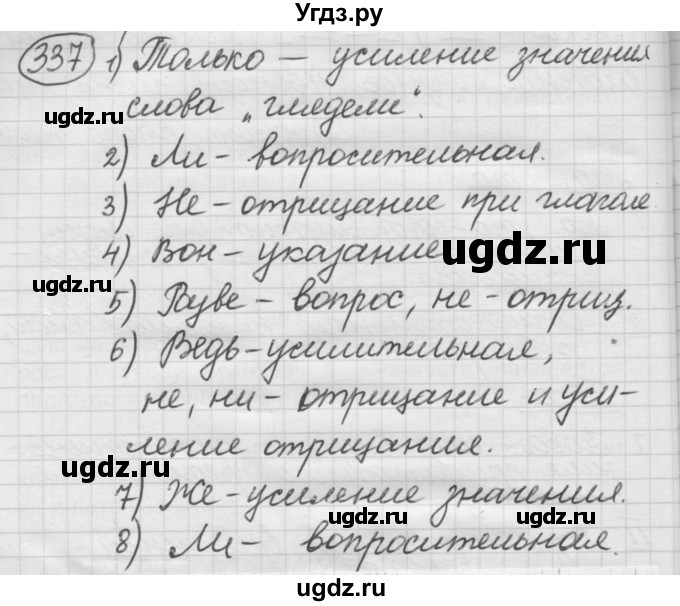 Угдз.ру
337 1) Только — усиление значения
слова „глядели“.
ugdz.ru
2) Ли - вопросительная.
ugdz.ru
3) Не - отрицание при глаголе
4) Вон - указание
ugdz.ru
ugdz.ru
5) Разве - вопрос, не - отриц.
6) Ведь - усилительная,
ugdz.ru
не, ни - отрицание и уси-
ление отрицания.
ugdz.ru
7) Же - усиление значения.
ugdz.ru ugdz.ru
8) Ли - вопросительная.
ugdz.ru
ugdz.ru